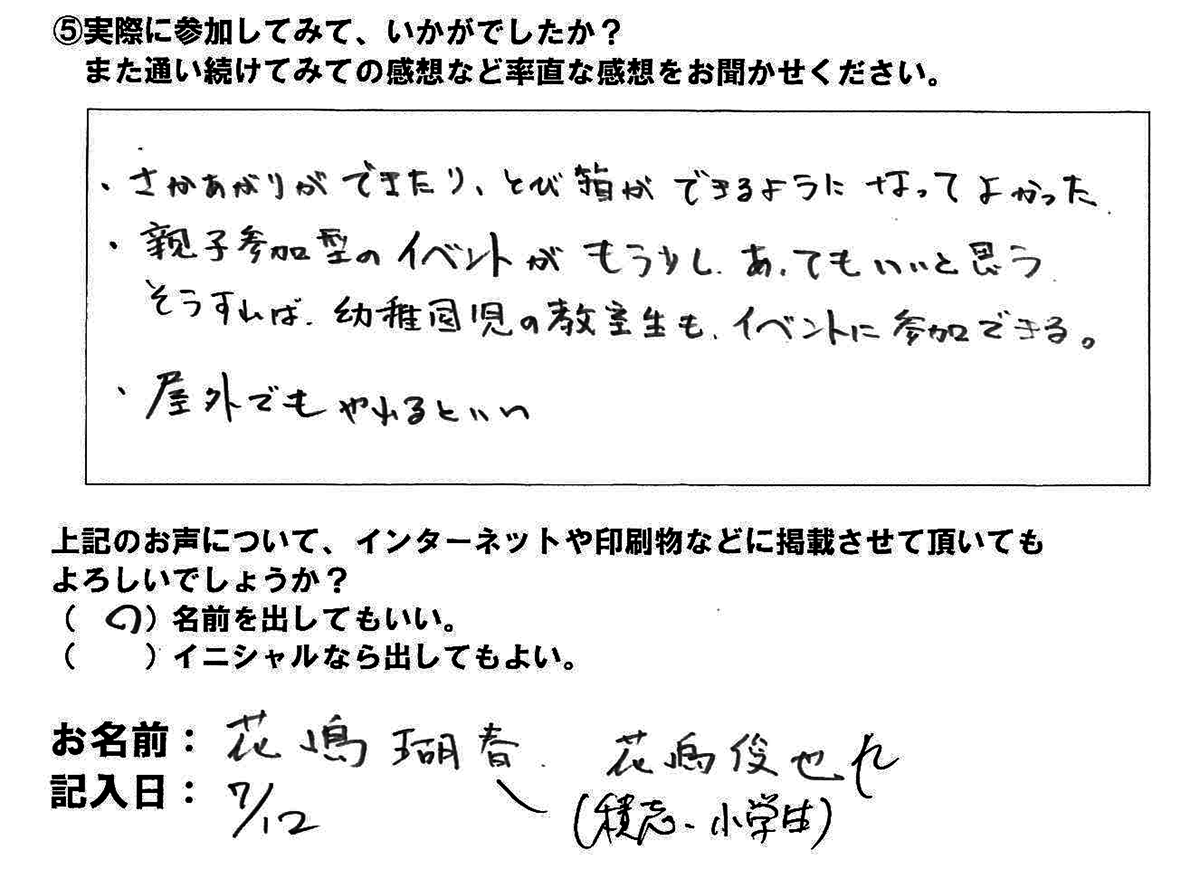 ⑤実際に参加してみて、いかがでしたか？
また通い続けてみての感想など率直な感想をお聞かせください。
・さかあがりができたり、とび箱ができるようになってよかった.
・親子参加型のイベントがもう少し、あってもいいと思う.
そうすれば、幼稚園児の教室生も、イベントに参加できる。
・屋外でもやれるといい
上記のお声について、インターネットや印刷物などに掲載させて頂いても
よろしいでしょうか？
（ ○）名前を出してもいい。
（　　）イニシャルなら出してもよい。
お名前： 花嶋 瑚春. 花嶋俊也
記入日： 7/12 (積志・小学生)